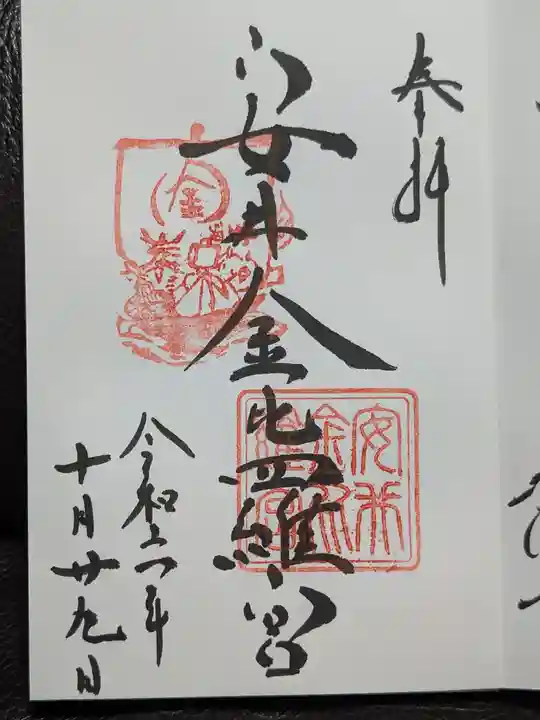 奉拝
安井金比羅宮
令和二年
十月廿九日
金